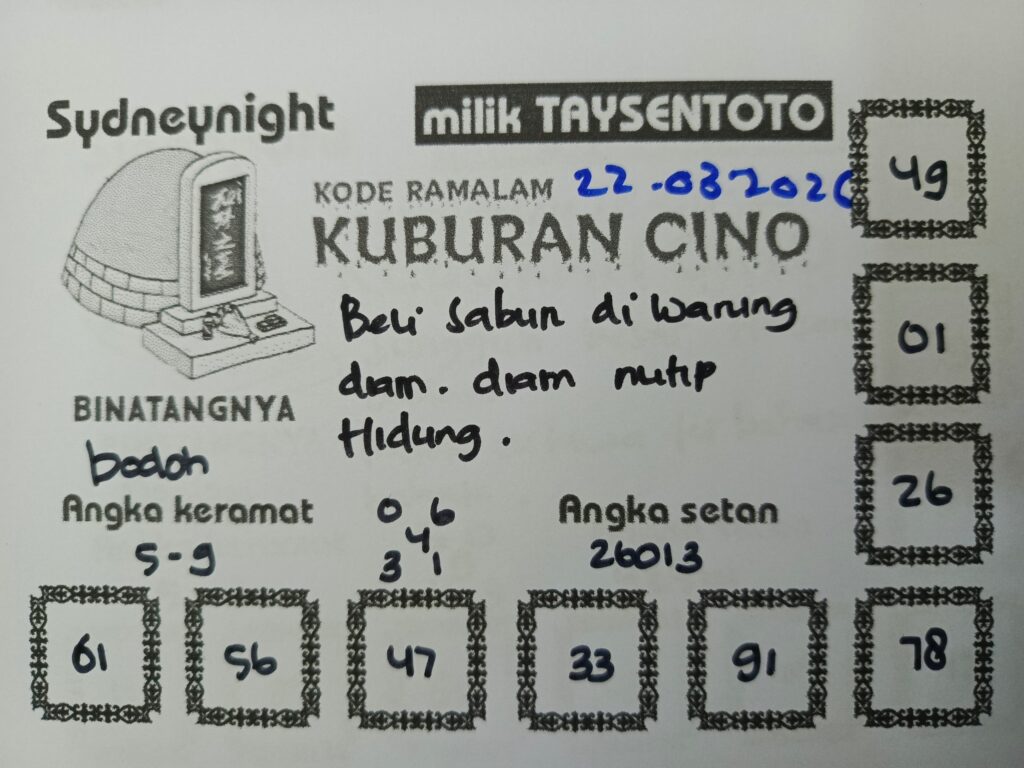 Sydneynight
milik TAYSENTOTO
KODE RAMALAM 22.03 2026
KUBURAN CINO
Beli Sabun di Warung
diam. diam nutup
Hidung.
BINATANGNYA
bodoh
Angka keramat
5-9
0 6
4
3 1
Angka setan
26013
49
01
26
61
56
47
33
91
78